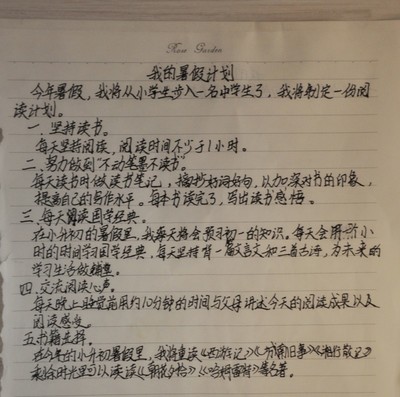 Rose Garden
我的暑假计划
今年暑假，我将从小学生步入一名中学生了，我将制定一份阅
读计划。
一、坚持读书。
每天坚持阅读，阅读时间不少于1小时。
二、努力做到“不动笔墨不读书”。
每天读书时做读书笔记，摘抄好词好句，以加深对书的印象，
提高自己的写作水平。每本书读完了，写出读书感悟。
三、每天诵读国学经典。
在小升初的暑假里，我每天将会预习初一的知识。每天会用小
时的时间学习国学经典，每天坚持背一篇文言文和三首古诗，为未来的
学习生活做铺垫。
四、交流阅读心声。
每天晚上睡觉前用约10分钟的时间与父母讲述今天的阅读成果以及
阅读感受。
五、书籍选择。
在今年的小升初暑假里，我将重读《西游记》《城南旧事》《湘行散记》
剩余时光里可以读读《朝花夕拾》《哈姆雷特》等名著。